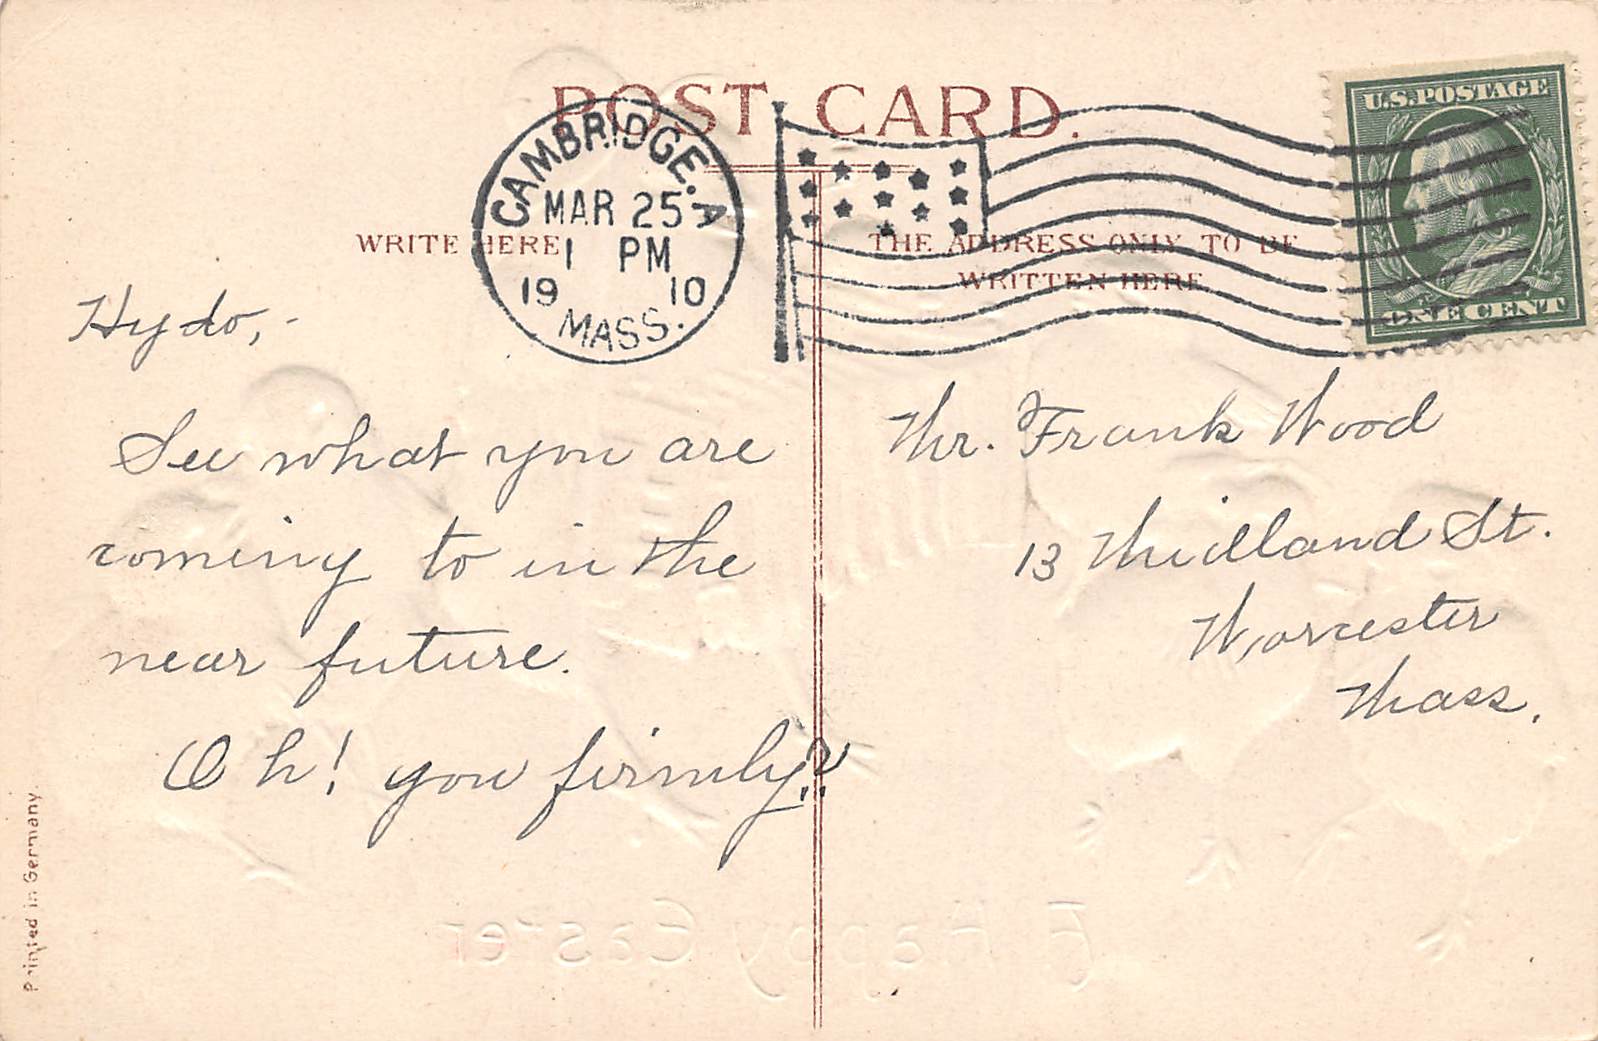 POST CARD.
CAMBRIDGE. A
MAR 25
1 PM
19 10
MASS.
U.S. POSTAGE
ONE CENT
WRITE HERE
THE ADDRESS ONLY TO BE
WRITTEN HERE
Hy do, -
See what you are
coming to in the
near future.
Oh! you firmly??
Mr. Frank Wood
13 Midland St.
Worcester
Mass.
Printed in Germany
A Happy Easter